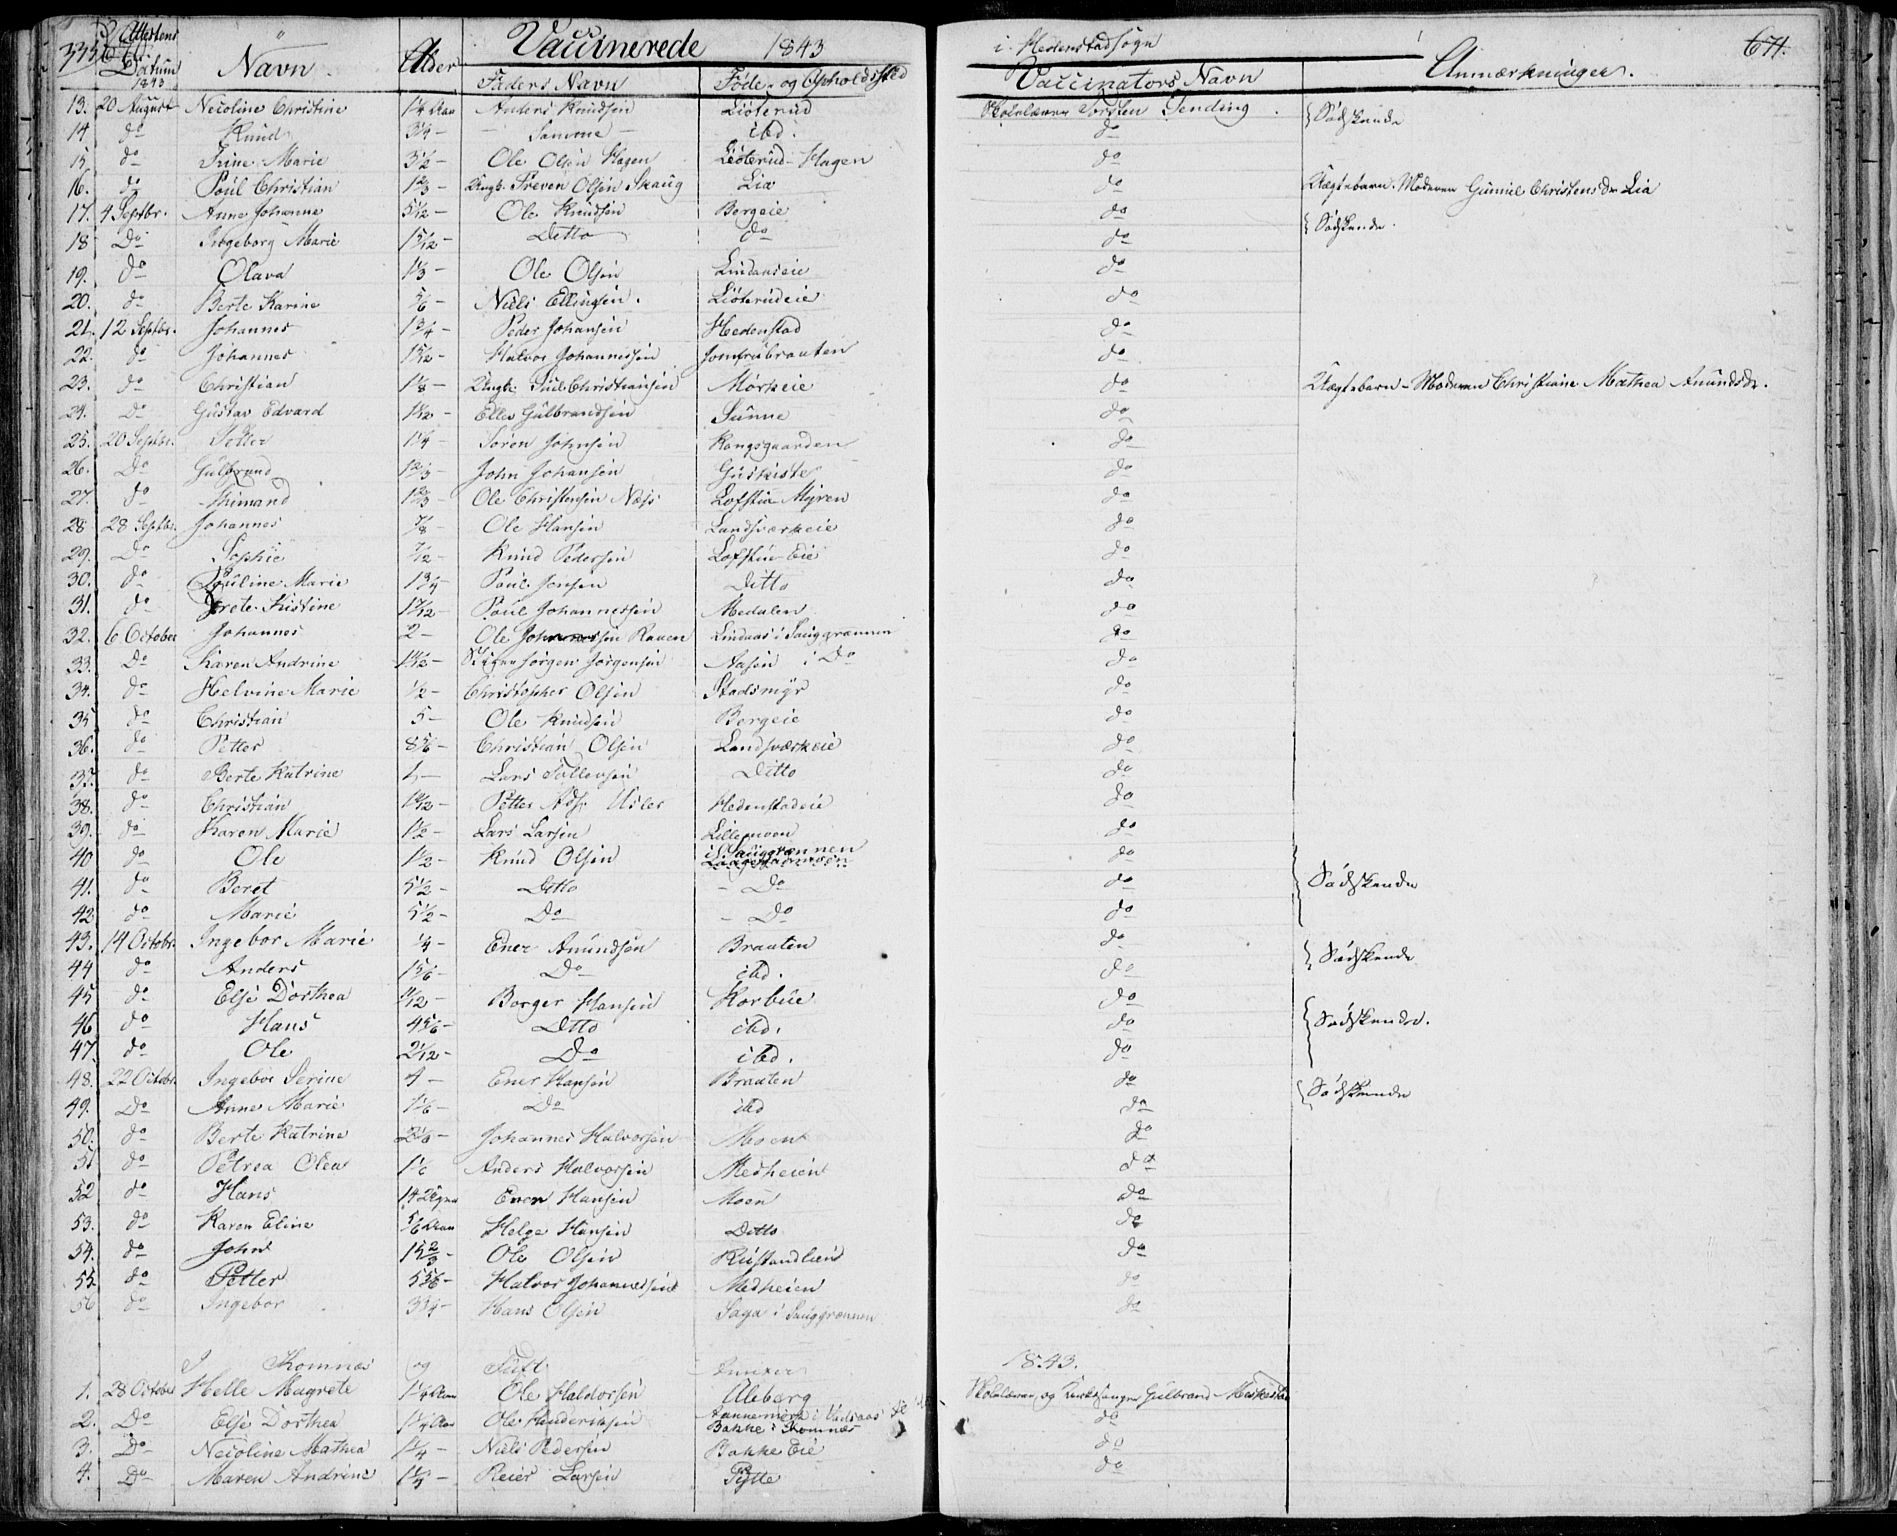 Attestens Datum 1843 Navn Alder Vaccinerede 1843 i Hedenstad sogn 671.
Faders Navn Føde- og Opholdssted Vaccinators Navn Anmærkninger.
13. 20 August Nicoline Christine 1 1/4 Aar Anders Knudsen Liøterud Skolelærer Torsten Tending. Södskende
14 do Knud 3 1/4 - Samme - ibd. do
15 do Trine Marie 3 1/2 - Ole Olsen Hagen Liøterud-Hagen do
16. do Poul Christian 1 2/3 - Ungk. Preven Olsen Skaug Lia do Uægtebarn. Moderen Gunnil Christensdr Lia
17. 4 Septbr. Anne Johanne 5 1/12 - Ole Knudsen Borgeie do Södskende.
18 Do Ingeborg Marie 1 5/12 - Ditto do do
19. do Olava 1 1/3 - Ole Olsen Lindaaseie do
20. do Berte Karine 5/6 - Niels Ellingsen. Liøterudeie do
21. 12 Septbr. Johannes 1 3/4 - Peder Johansen Hedenstad do
22. do Johannes 1 5/12 - Halvor Johannessen Jomfrubraaten do
23. do Christian 1 1/8 - Ungk. Poul Christiansen Mørkeie do Uægtebarn - Moderen Christiane Mathea Amundsdr.
24. Do Gustav Edvard Ellef Gulbrandsen Sunne do
25. 20 Septbr. Petter 1 1/4 - Søren Johnsen Kongsgaarden do
26. Do Gulbrand 1 2/3 - John Johansen do
27. do Thimand 1 2/3 - Ole Christensen Næss Lofstiu Myren do
28 28 Septbr. Johannes 7/8 - Ole Hansen Landsværkeie do
29. Do Sophie 7/12 - Knud Pedersen Lofstiu Eie do
30. do Pauline Marie 1 3/4 - Poul Jensen Ditto do
31. do Grete Kistine 1 7/12 - Poul Johannessen Medalen do
32. 6 October Johannes 2 - Ole Johannessen Raaen Lindaas i Sauggrænnen do
33. Do Karen Andrine Jørgen Jørgensen Aasen i Do do
34. do Helvine Marie 1/2 - Christopher Olsen Stadsmyr do
35 do Christian 5 - Ole Knudsen Borgeie do
36. do Petter 8 5/6 - Christian Olsen Landsværkeie do
37. do Berte Katrine Lars Tollevsen Ditto do
38. do Christian Petter Usler Hedenstadeie do
39. do Karen Marie 1 1/2 - Lars Larsen Lillemoen do
40 do Ole 1 1/2 - Knud Olsen i Sauggrænnen do
41. do Beret 5 1/2 - Ditto - Do do Södskende
42 do Marie 5 1/2 - Do - Do do
43. 14 Octobr. Ingebor Marie 1/4 - Ener Amundsen Braaten do Södskende
44 do Anders 1 5/6 - Do ibd. do
45 do Else Dorthea 11/12 - Borger Hansen Korbue do
46 do Hans 4 5/6 - Ditto ibd. do Södskende.
47. do Ole 2 1/12 - Do ibd. do
48. 22 Octobr. Ingebor Serine 4 - Ener Hansen Braaten do Södskende
49. Do Anne Marie 1 1/6 - Do ibd do
50. do Berte Katrine 2 1/6 - Johannes Halvorsen Moen do
51 do Petrea Olea 1 1/6 Anders Halvorsen Medheien do
52 do Hans 14 Uger Ener Hansen Moen do
53. do Karen Eline 5/6 Aar Helge Hansen Ditto do
54. do John 15 2/3 - Ole Olsen Rustandlien do
55. do Petter 5 5/6 - Halvor Johannessen Medheien do
56 do Ingebor 3 3/4 - Hans Olsen Saga i Sauggrænnen do
I Komnæs og Tuft Annexer 1843.
1. 28 October Helle Magrete 1 1/4 Aar Ole Haldorsen Aleberg Skolelærer og Kirkesanger Gulbrand
2. Do Else Dorthea 1 1/4 Aar Ole Henderiksen Bakke i Komnæs do
3. Do Nicoline Mathea 1 1/4 - Niels Pedersen Bakke Eie do
4. Do Maren Andrine Reier Larsen Pytte do